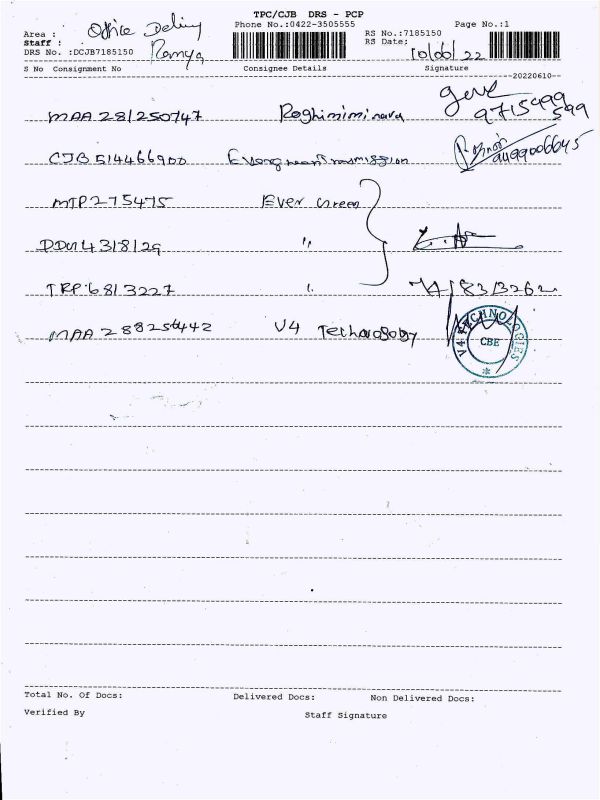 TPC/CJB DRS - PCP
Area : Office Phone No.:0422-3505555 Page No.:1
Staff : Ramya RS No.:7185150
DRS No. :DCJB7185150 RS Date: 10/06/22
S No Consignment No Consignee Details Signature
--20220610--
MAA 281250747
9715499599
CJB 514466900
MTP 275475 Ever Green
DDM 4318129 "
TRP 6813227 "
MAA 288256442 V4 Technology
V4 TECHNOLOGIES
CBE
Total No. Of Docs: Delivered Docs: Non Delivered Docs:
Verified By Staff Signature